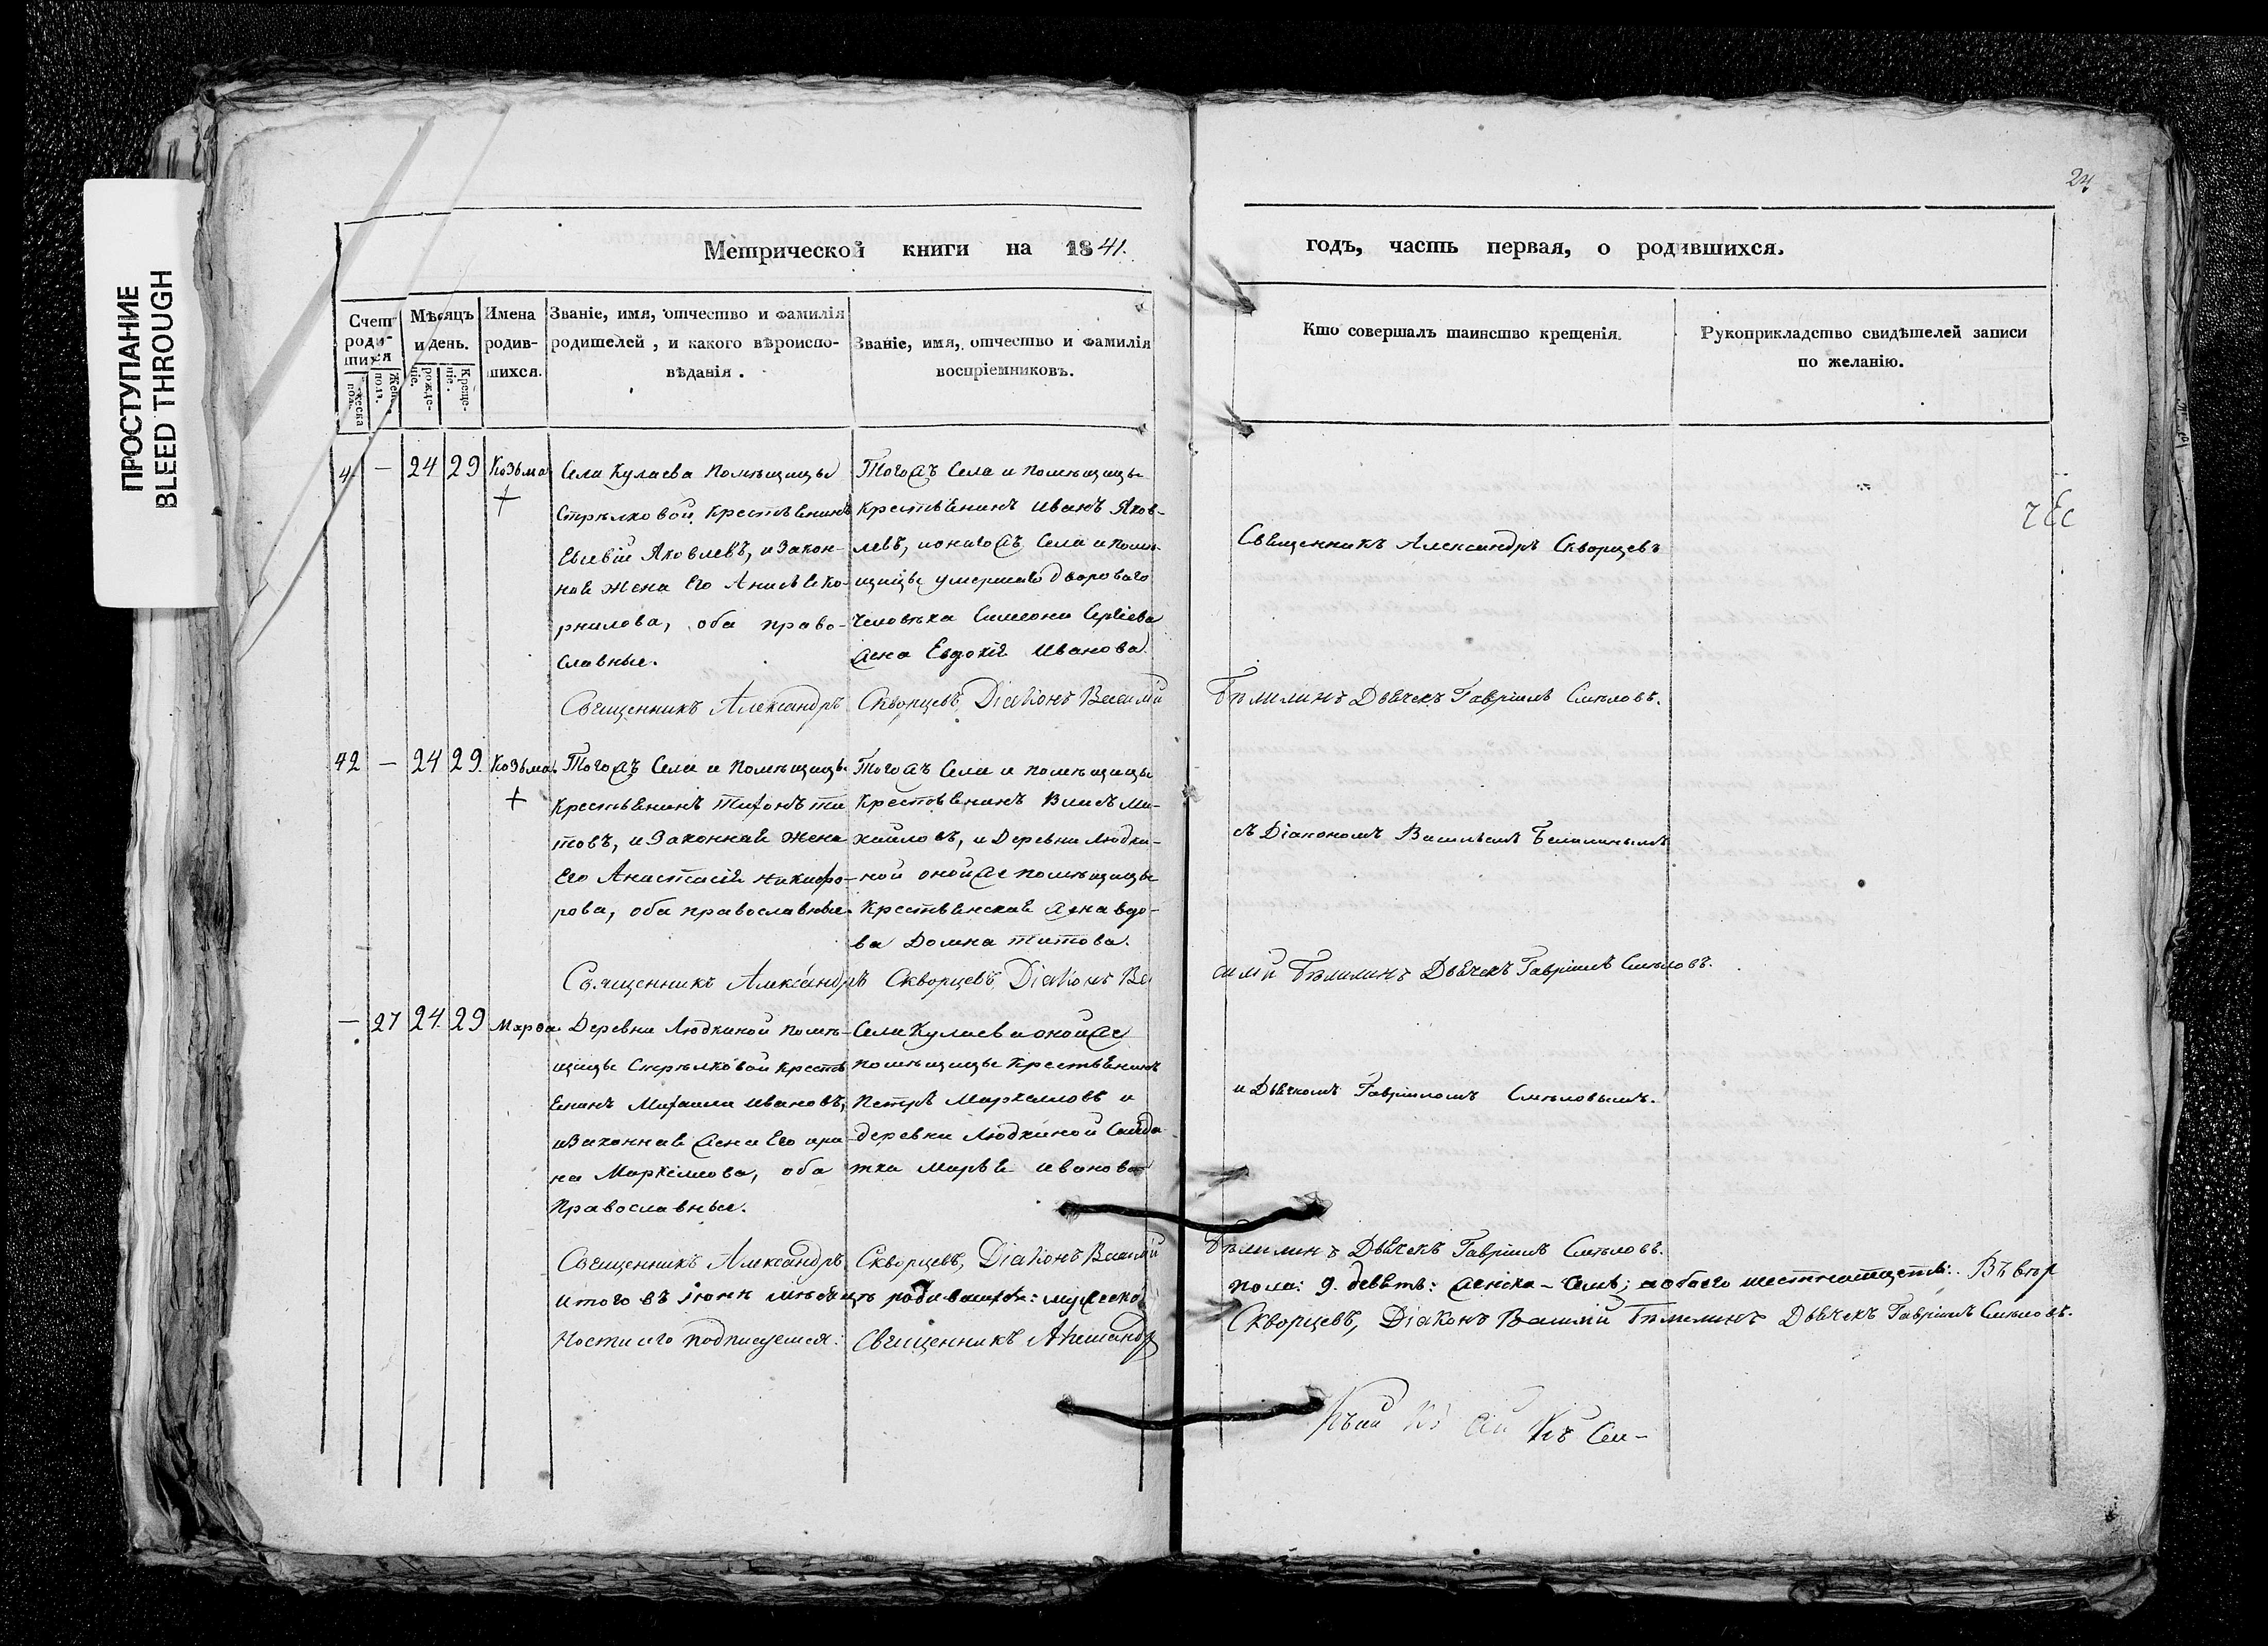 ПРОСТУПАНИЕ
BLEED THROUGH
24
Метрической книги на 1841.
годъ, часть первая, о родившихся.
Счетъ родившихся
Мѣсяцъ и день.
Имена родившихся.
Званіе, имя, отчество и фамилія родителей, и какого вѣроисповѣданія.
Званіе, имя, отчество и фамилія воспріемниковъ.
Кто совершалъ таинство крещенія.
Рукоприкладство свидѣтелей записи по желанію.
рожденіе.
Крещеніе.
4 — 24 29 Козьма
Села Кулаева Помѣщицы
Стрѣлковой, Крестьянинъ
Евсевій Яковлевъ, и Закон-
ная жена Его Анисья Ко-
рнилова, оба право-
славные.
Тогожъ Села и помѣщицы
Крестьянинъ Иванъ Яков-
левъ, и онагожъ Села и помѣ-
щицы умершаго двороваго
человѣка Симеона Сергіева
жена Евдокія Иванова.
Священникъ Александръ Скворцевъ
Священникъ Александръ Скворцевъ, Діаконъ Василій Бѣлилинъ Дьячекъ Гавріилъ Смѣловъ.
42 — 24 29. Козьма.
Тогожъ Села и Помѣщицы
Крестьянинъ Тихонъ Ти-
товъ, и Законная Жена
Его Анастасія Никифо-
рова, оба православные.
Тогожъ Села и помѣщицы
Крестьянинъ Ми-
хайловъ, и Деревни Людки-
ной онойже помѣщицы
Крестьянская жена вдо-
ва Домна Титова.
съ Діакономъ Васильемъ Белилинымъ
Священникъ Александръ Скворцевъ, Діаконъ Василій Бѣлилинъ Дьячекъ Гавріилъ Смѣловъ.
— 27 24. 29 Марѳа.
Деревни Людкиной помѣ-
щицы Стрѣлковой Кресть
янинъ Михаилъ Ивановъ,
и Законная жена Его Ири-
на Маркелова, оба
Православные.
Села Кулаева онойже
помѣщицы Крестьянинъ
Петръ Маркелловъ и
деревни Людкиной Салда-
тка Марья Иванова
и Дьячкомъ Гавріиломъ Смѣловымъ.
Священникъ Александръ Скворцевъ, Діаконъ Василій Бѣлилинъ Дьячекъ Гавріилъ Смѣловъ.
Итого въ Іюнѣ мѣсяцѣ родившихся: мужеска пола: 9. девять: женска – семь; а обоего шестнатцеть: Въ вѣр
ности сего подписуемся: Священникъ Александръ Скворцевъ, Діаконъ Василій Бѣлилинъ Дьячекъ Гавріилъ Смѣловъ.